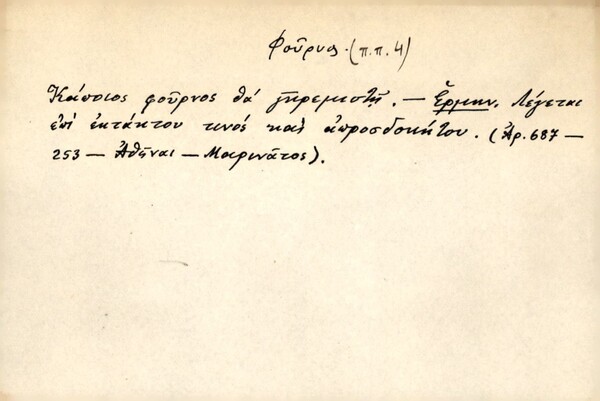 Φοῦρνος. (π.π. 4)
Κάποιος φοῦρνος θά γκρεμιστῇ. — Ἑρμην. Λέγεται
ἐπί ἐκτάκτου τινός καί ἀπροσδοκήτου. (Ἀρ. 687 —
253 — Ἀθῆναι — Μαρινᾶτος).